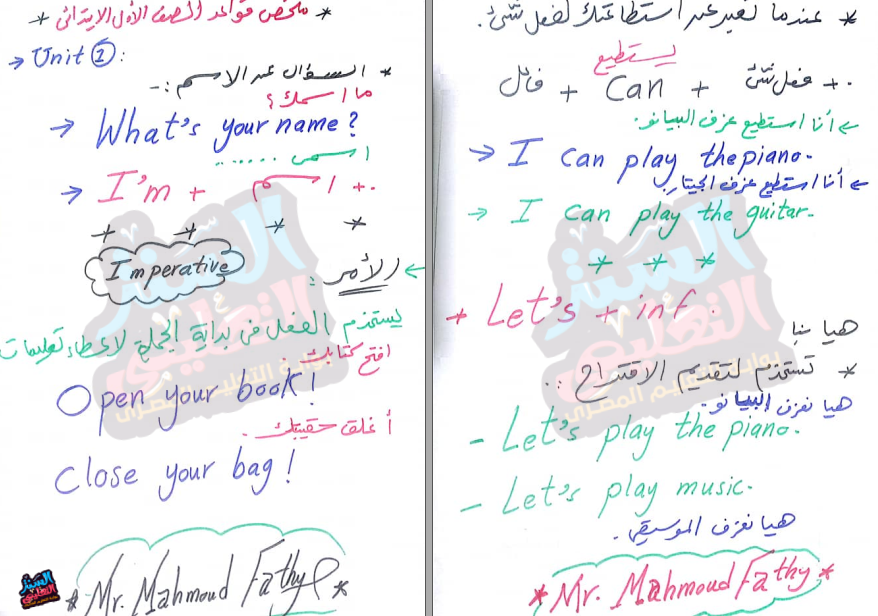 * ملخص قواعد الصف الأول الابتدائى *
→ Unit 1:
* السؤال عن الاسم :-
ما اسمك؟
→ What's your name?
اسمى .......
→ I'm + اسم +.
* * * *
← الأمر : Imperative
يستخدم الفعل فى بداية الجملة لاعطاء تعليمات
افتح كتابك.
Open your book!
أغلق حقيبتك.
Close your bag!
* Mr. Mahmoud Fathy *
السنتر التعليمى
* عندما تعبر عن استطاعتك لفعل شئ.
يستطيع
فاعل + Can + فعل شئ +.
← أنا استطيع عزف البيانو.
→ I can play the piano.
← أنا استطيع عزف الجيتار.
→ I can play the guitar.
* * *
* Let's + inf.
هيا بنا
* تستخدم لتقديم الاقتراح :.
هيا نعزف البيانو.
- Let's play the piano.
- Let's play music.
هيا نعزف الموسيقى.
* Mr. Mahmoud Fathy *
السنتر التعليمى
بوابة التعليم المصرى
السنتر التعليمى
بوابة التعليم المصرى